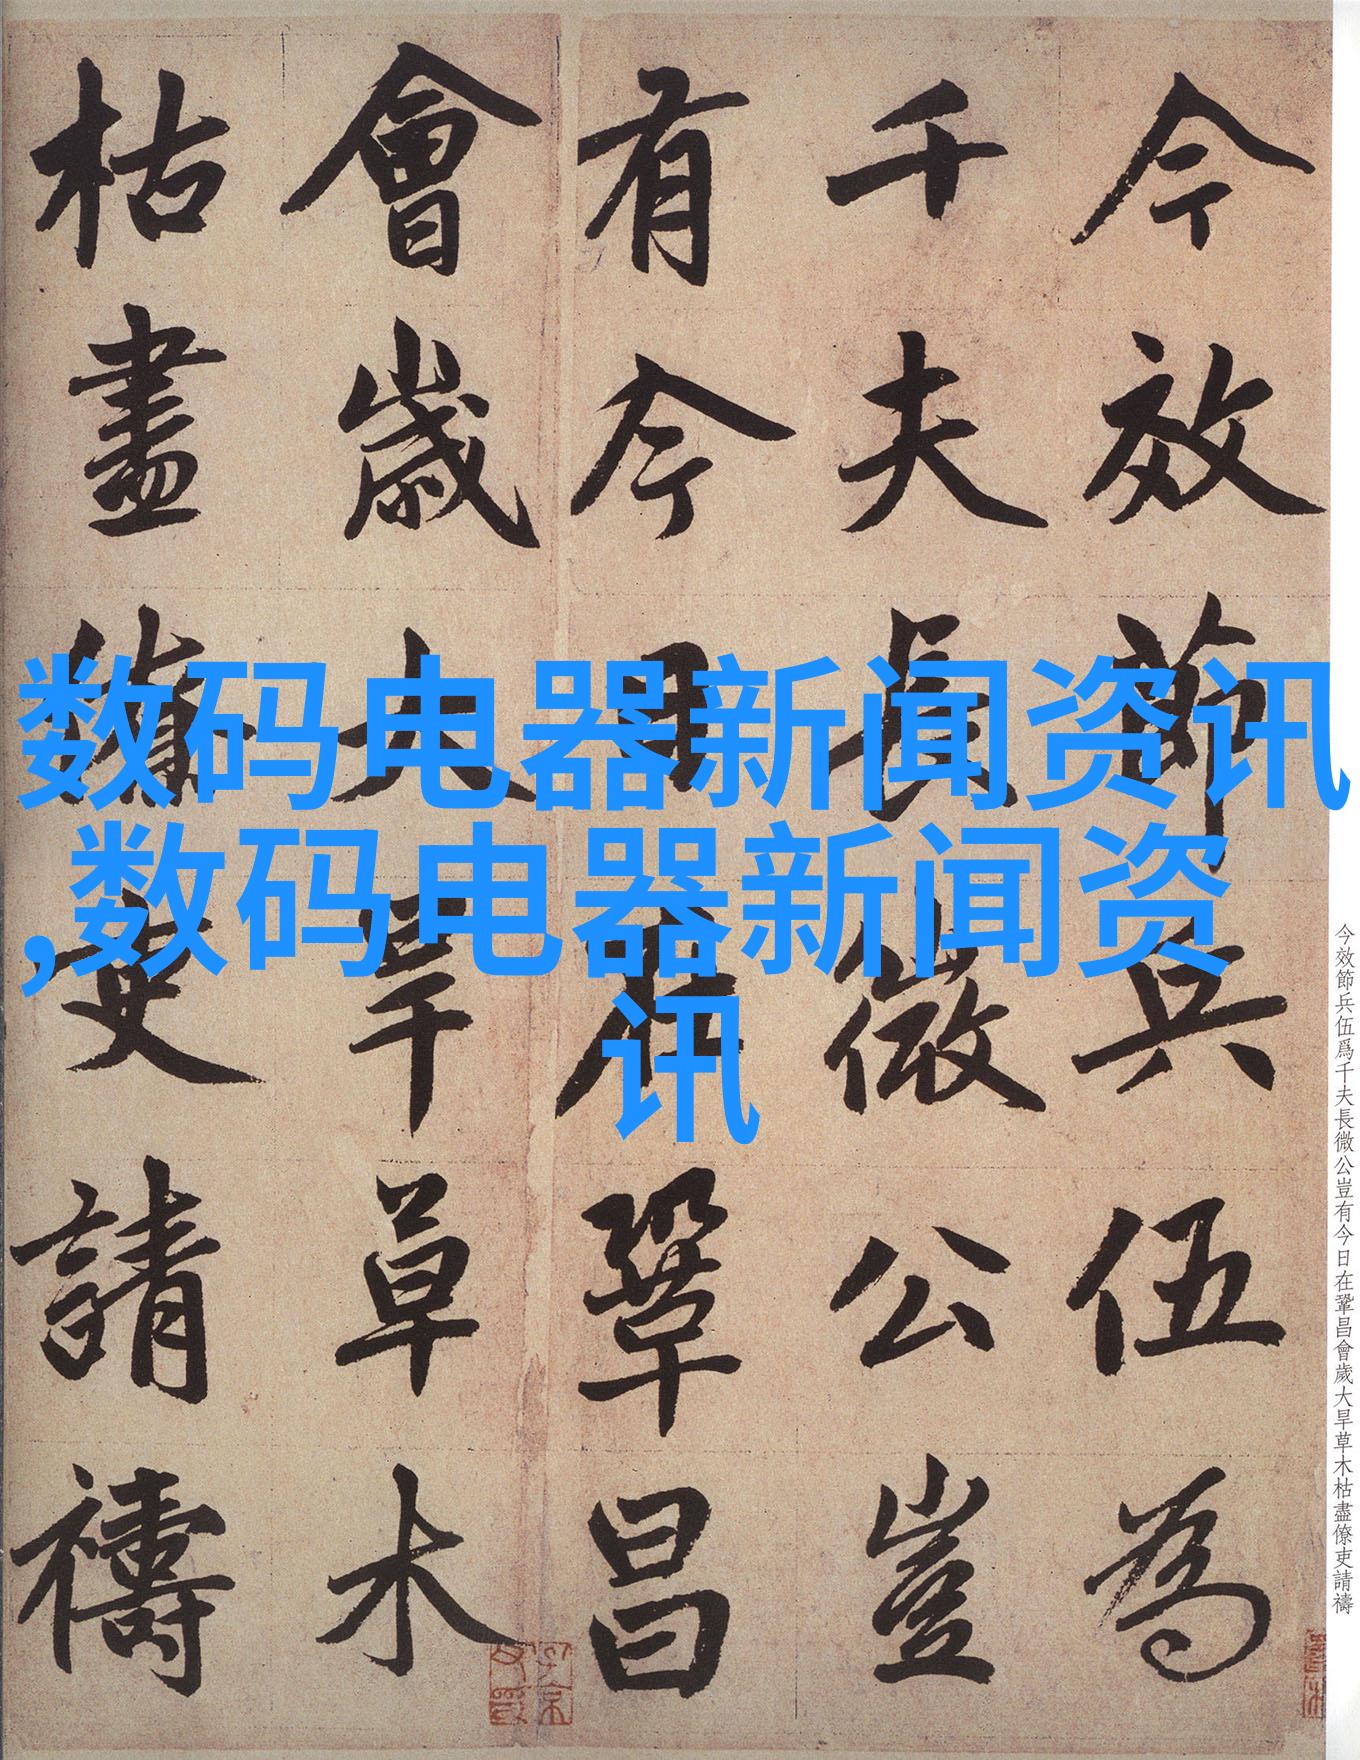 数码电器新闻资讯
,数码电器新闻资
讯
今效節兵伍爲千夫長微公豈有今日在鞏昌會歲大旱草木枯盡僚吏請禱
今效節兵伍為
千夫長微公豈
有今日在鞏昌
會歲大旱草木
枯盡僚吏請禱